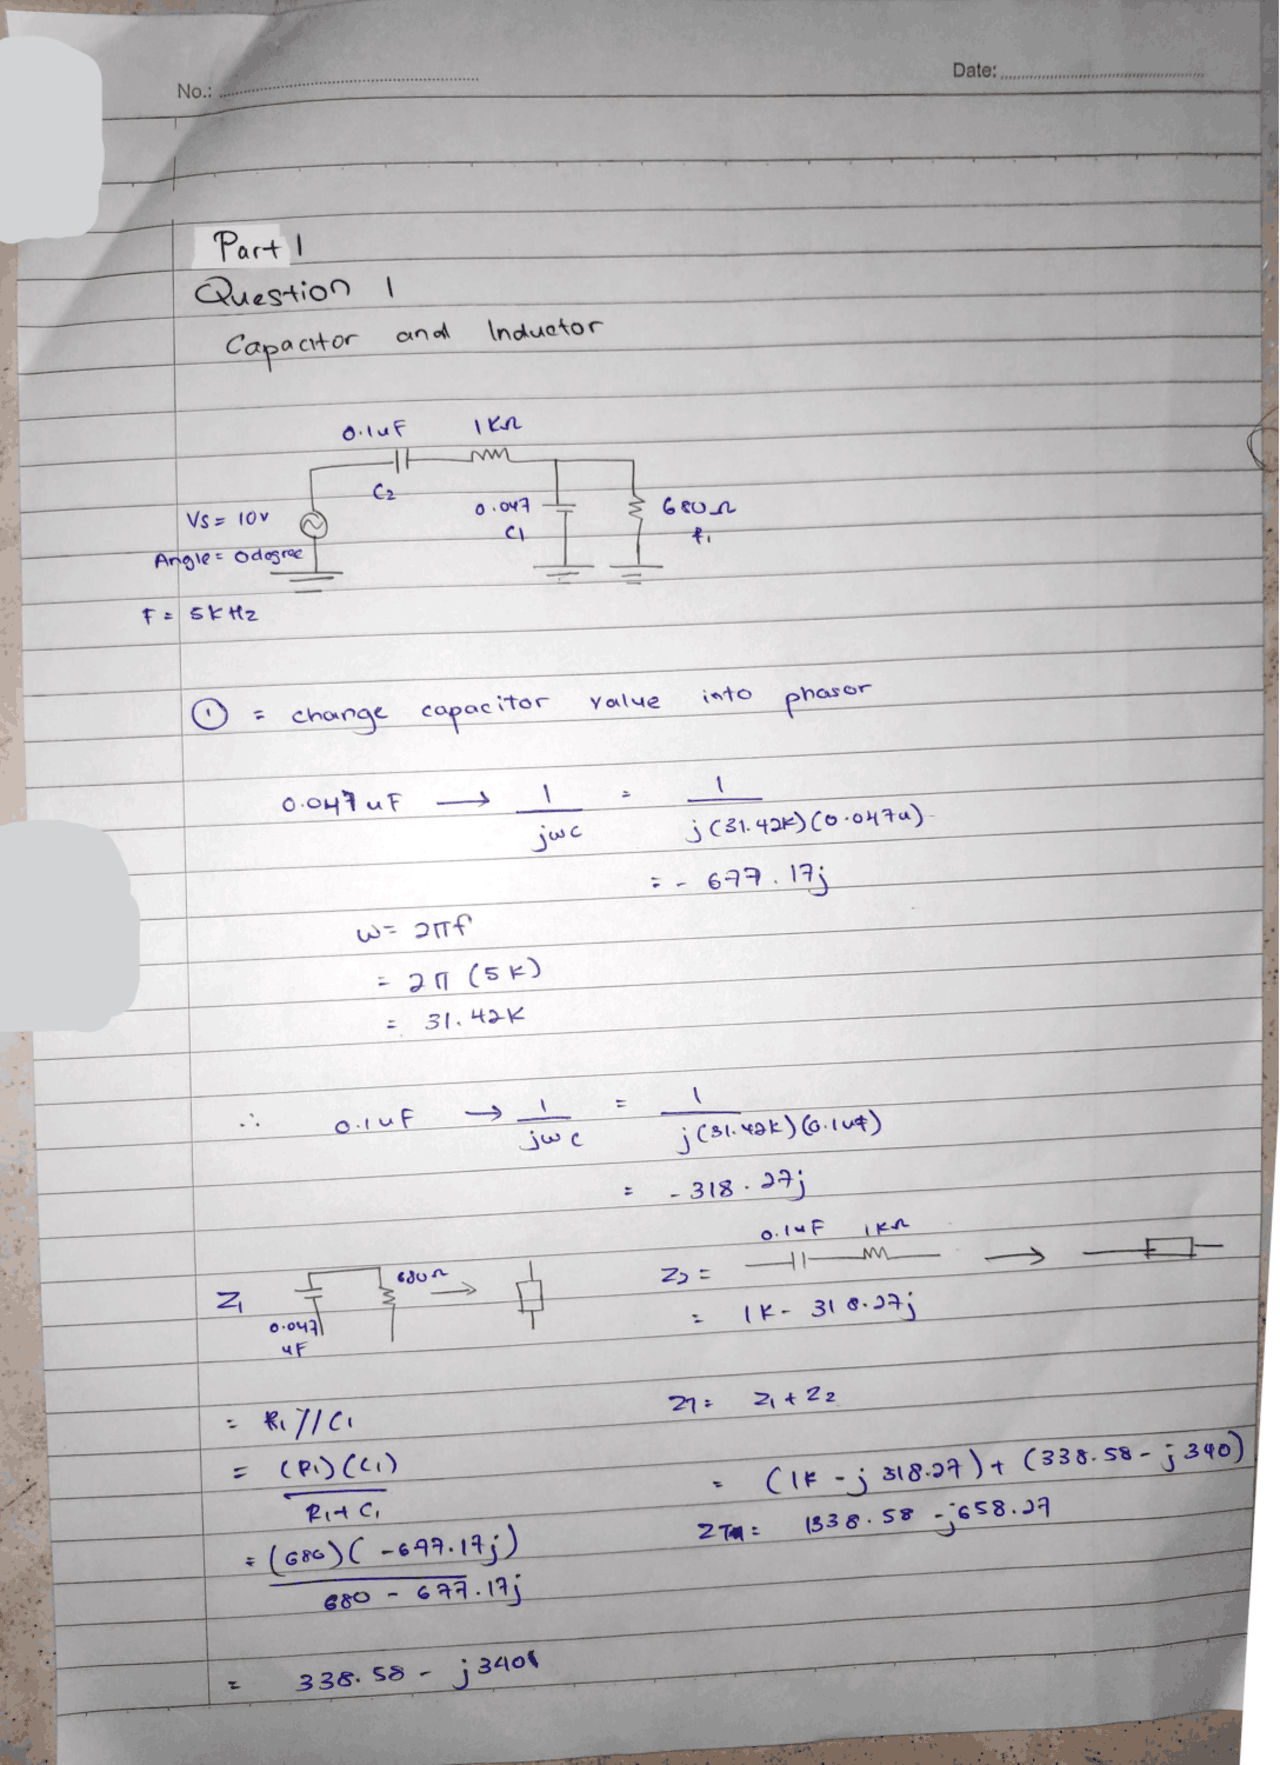 No.:
Date:
Part 1
Question 1
Capacitor and Inductor
0.1uF 1KΩ
C2
0.047
C1
680Ω
R1
Vs = 10v
Angle = 0degree
F = 5KHz
① = change capacitor value into phasor
0.047uF → 1/jωc = 1/j(31.42K)(0.047u)
= - 677.17j
ω= 2πf
= 2π (5K)
= 31.42K
∴ 0.1uF → 1/jωc = 1/j(31.42k)(0.1uf)
= - 318.27j
Z1 0.047uF 680Ω →
= R1 // C1
= (R1)(C1)/R1+C1
= (680)(-677.17j)/680 - 677.17j
= 338.58 - j340
Z2 = 0.1uF 1KΩ →
= 1K - 318.27j
ZT = Z1 + Z2
= (1K - j318.27) + (338.58 - j340)
ZTH = 1338.58 - j658.27